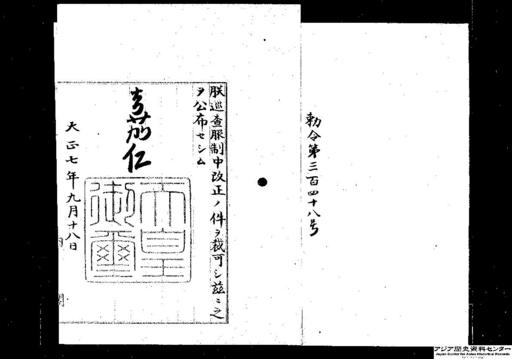 勅令第三百四十八号
朕巡査服制中改正ノ件ヲ裁可シ茲ニ之
ヲ公布セシム
嘉仁
天皇
御璽
大正七年九月十八日
アジア歴史資料センター
Japan Center for Asian Historical Records